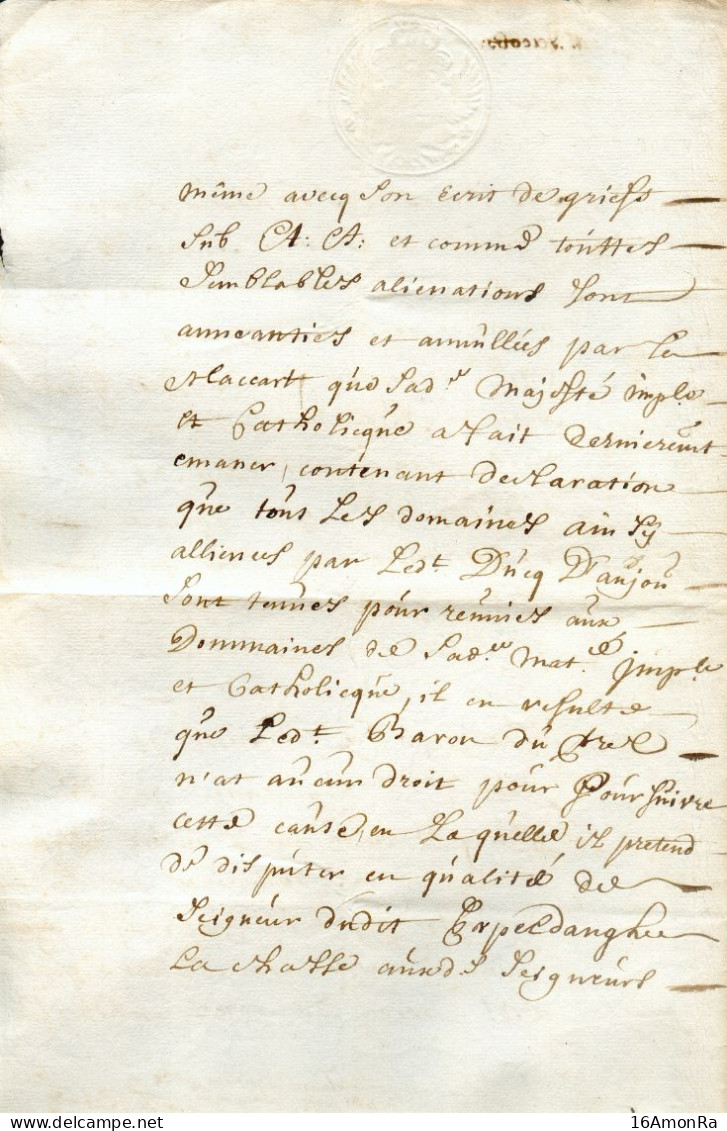 même avecq son Ecrit de griefs
sub A: A: et comme touttes
semblables alienations sont
anneanties et annullées par le
placcart que sad.e Majesté imp.le
et Catholicque a fait dernieremt
emaner, contenant declaration
que tous les domaines ainsy
allienees par led.t Ducq D'anjou
sont tenues pour reunies aux
Dommaines de sad.e Mat.é imp.le
et Catholicque, il en resulte
que Led.t Baron du
n'at aucun droit pour poursuivre
cette cause, en laquelle il pretend
de disputer en qualité de
seigneur dudit Erpeldanghe
la chasse auxd.s seigneurs
16AmonRa
delcampe.net